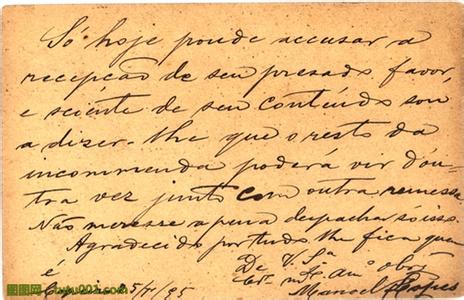 Só hoje poude accusar a
recepção de seu presado favor,
e sciente de seu contéudo sou
a dizer-lhe que o resto da
incommenda poderá vir d'ou-
tra vez junto com outra remessa
Não meresse a pena despachar só isso.
Agradecido por tudo lhe fica quem
é De V. Sª
m.to am.o obr.o
Manoel
图图网